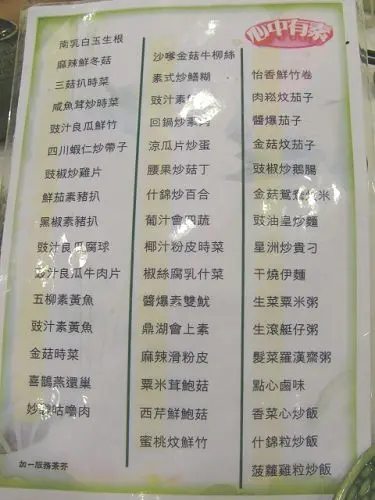 心中有素
南乳白玉生根
麻辣鮮冬菇
三菇扒時菜
咸魚茸炒時菜
豉汁良瓜鮮竹
四川蝦仁炒帶子
豉椒炒雞片
鮮茄素豬扒
黑椒素豬扒
豉汁良瓜腐球
豉汁良瓜牛肉片
五柳素黃魚
豉汁素黃魚
金菇時菜
喜鵲燕還巢
妙韻咕嚕肉
如一版務茶芥
沙嗲金菇牛柳絲
素式炒鱔糊
豉汁素
回鍋炒素肉
涼瓜片炒蛋
腰果炒菇丁
什錦炒百合
葡汁會四蔬
椰汁粉皮時菜
椒絲腐乳什菜
醬爆素雙魷
鼎湖會上素
麻辣滑粉皮
粟米茸鮑菇
西芹鮮鮑菇
蜜桃炆鮮竹
怡香鮮竹卷
肉崧炆茄子
醬爆茄子
金菇炆茄子
豉椒炒鵝腸
金菇鴛鴦炆米
豉油皇炒麵
星洲炒貴刁
干燒伊麵
生菜粟米粥
生滾艇仔粥
髮菜羅漢齋粥
點心鹵味
香菜心炒飯
什錦粒炒飯
菠蘿雞粒炒飯